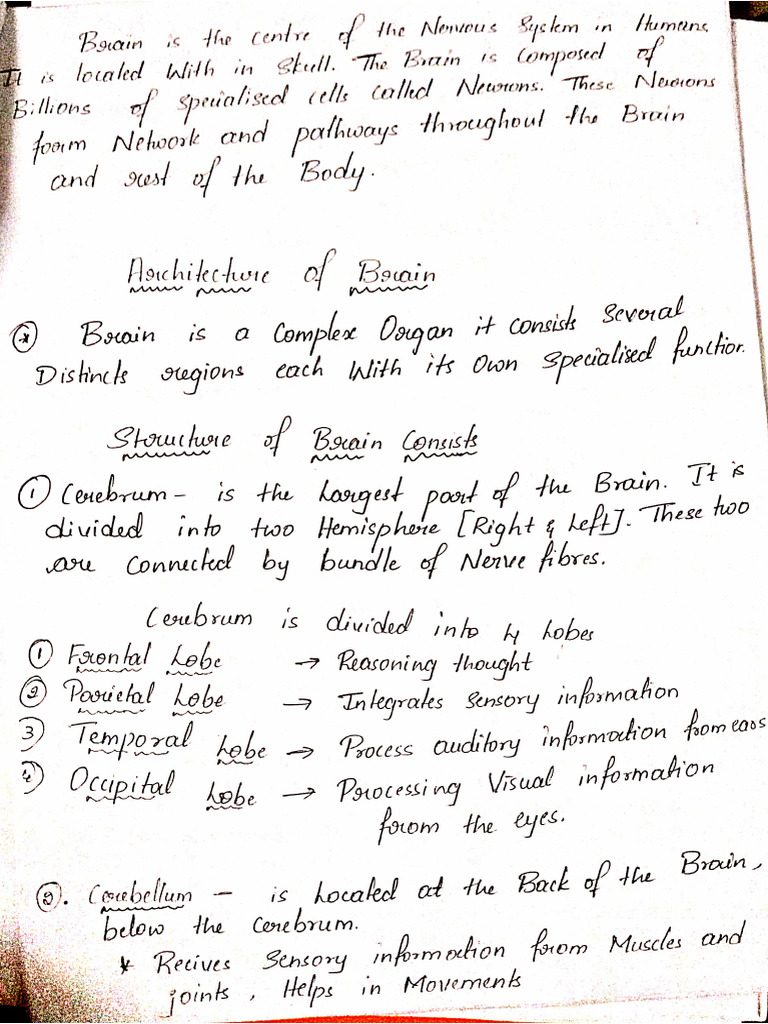 Brain is the centre of the Nervous System in Humans
It is located With in Skull. The Brain is Composed of
Billions of specialised cells called Neurons. These Neurons
form Network and pathways throughout the Brain
and rest of the Body.
Architecture of Brain
* Brain is a Complex Organ it consists several
Distincts regions each With its Own specialised function.
Structure of Brain Consists
1 Cerebrum - is the Largest part of the Brain. It is
divided into two Hemisphere [Right & Left]. These two
are connected by bundle of Nerve fibres.
Cerebrum is divided into 4 Lobes
1 Frontal Lobe → Reasoning thought
2 Parietal Lobe → Integrates Sensory information
3) Temporal Lobe → Process auditory information from ears
4) Occipital Lobe → Processing Visual information
from the eyes.
2. Cerebellum - is Located at the Back of the Brain,
below the Cerebrum.
* Recives Sensory information from Muscles and
joints, Helps in Movements